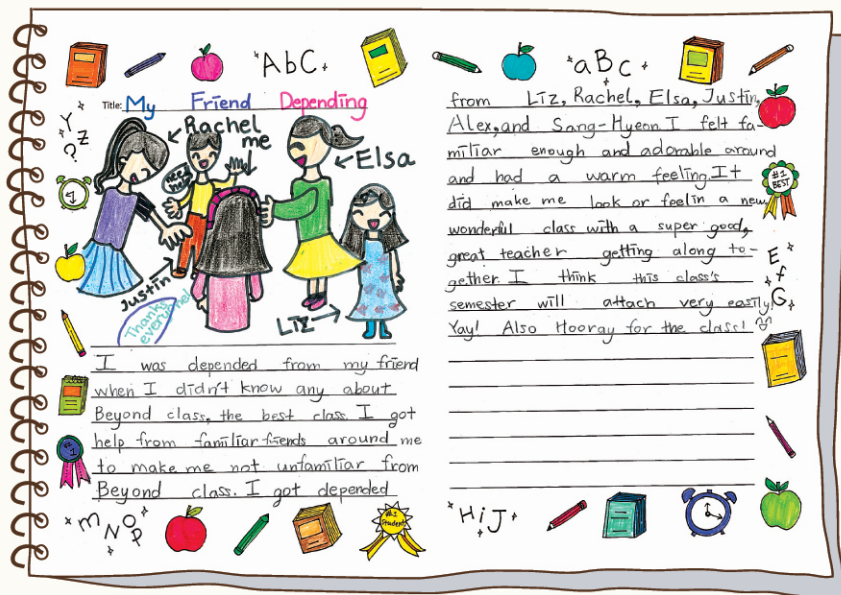 AbC
Title: My Friend Depending
Y
Z
?
Rachel
me
need help?
Elsa
Justin
Thanks everyone!
Liz
I was depended from my friend
when I didn't know any about
Beyond class, the best class. I got
help from familiar friends around me
to make me not unfamiliar from
Beyond class. I got depended
#1
m
N
O
P
#1
student
aBc
from Liz, Rachel, Elsa, Justin,
Alex, and Sang-Hyeon. I felt fa-
miliar enough and adorable around
and had a warm feeling. It
did make me look or feel in a new
wonderful class with a super good,
great teacher getting along to-
gether. I think this class's
semester will attach very easily.
Yay! Also Hooray for the class!
#1
BEST
E
f
G
HiJ